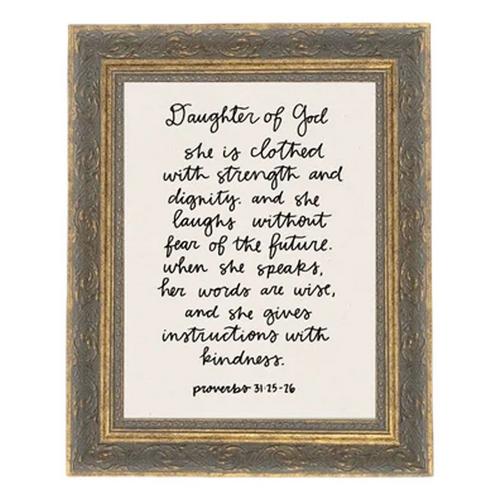 Daughter of God
she is clothed
with strength and
dignity. and she
laughs without
fear of the future.
when she speaks,
her words are wise,
and she gives
instructions with
kindness.
proverbs 31:25-26